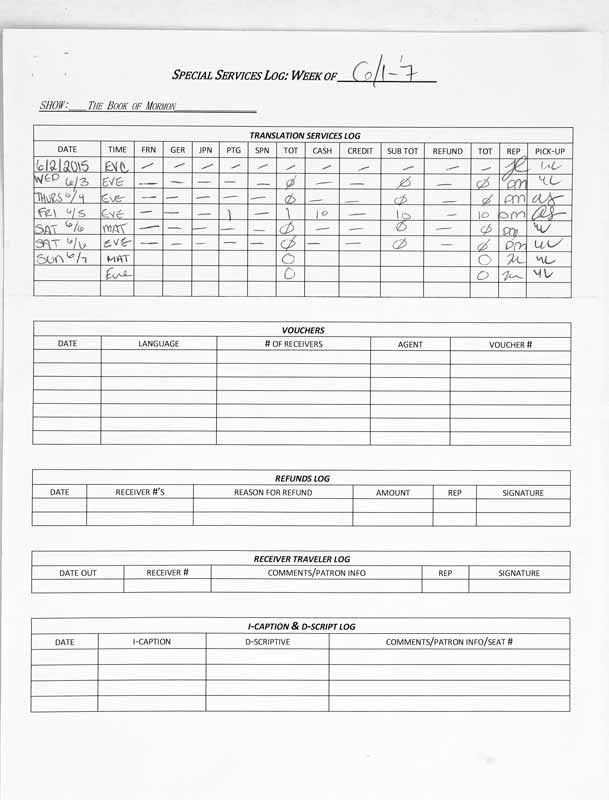 SPECIAL SERVICES LOG: WEEK OF 6/1-7
SHOW: THE BOOK OF MORMON
TRANSLATION SERVICES LOG
DATE TIME FRN GER JPN PTG SPN TOT CASH CREDIT SUB TOT REFUND TOT REP PICK-UP
6/2/2015 EVE — — — — — — — — — — —
WED 6/3 EVE — — — — — Ø — — Ø — Ø DM
THURS 6/4 EVE — — — — — Ø — — Ø — Ø DM as
FRI 6/5 EVE — — — 1 — 1 10 — 10 — 10 DM as
SAT 6/6 MAT — — — — — Ø — — Ø — Ø DM
SAT 6/6 EVE — — — — — Ø — — Ø — Ø DM
SUN 6/7 MAT O O
Eve O O
VOUCHERS
DATE LANGUAGE # OF RECEIVERS AGENT VOUCHER #
REFUNDS LOG
DATE RECEIVER #'S REASON FOR REFUND AMOUNT REP SIGNATURE
RECEIVER TRAVELER LOG
DATE OUT RECEIVER # COMMENTS/PATRON INFO REP SIGNATURE
I-CAPTION & D-SCRIPT LOG
DATE I-CAPTION D-SCRIPTIVE COMMENTS/PATRON INFO/SEAT #